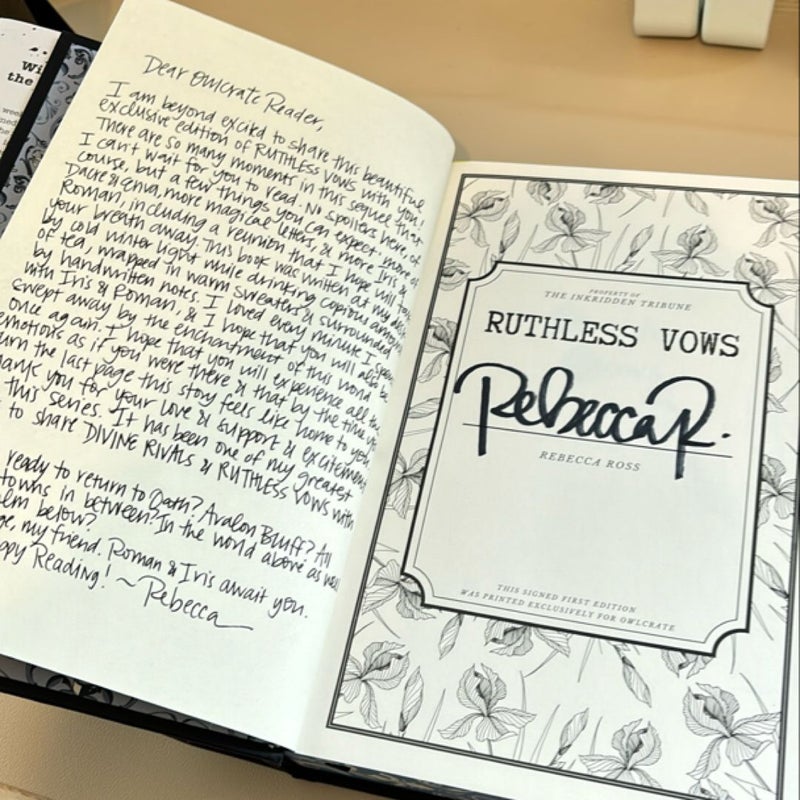 Wi
the
Dear Owlcrate Reader,
I am beyond excited to share this beautiful
exclusive edition of RUTHLESS VOWS with you!
There are so many moments in this sequel that
I can't wait for you to read. No spoilers here, of
course, but a few things you can expect: more of
Dacre & Enva, more magical letters, & more Iris &
Roman, including a reunion that I hope will take
your breath away. This book was written at my desk
by cold winter light while drinking copious amounts
of tea, wrapped in warm sweaters & surrounded
by handwritten notes. I loved every minute I spent
with Iris & Roman, & I hope that you will also be
swept away by the enchantment of this world
once again. I hope that you will experience all the
emotions as if you were there & that by the time you
turn the last page this story feels like home to you.
thank you for your love & support & excitement
this series. It has been one of my greatest
to share DIVINE RIVALS & RUTHLESS VOWS with
ready to return to Oath? Avalon Bluff? All
towns in between? In the world above as well
below?
my friend. Roman & Iris await you.
Happy Reading! ~ Rebecca
PROPERTY OF
THE INKRIDDEN TRIBUNE
RUTHLESS VOWS
Rebecca R.
REBECCA ROSS
THIS SIGNED FIRST EDITION
WAS PRINTED EXCLUSIVELY FOR OWLCRATE